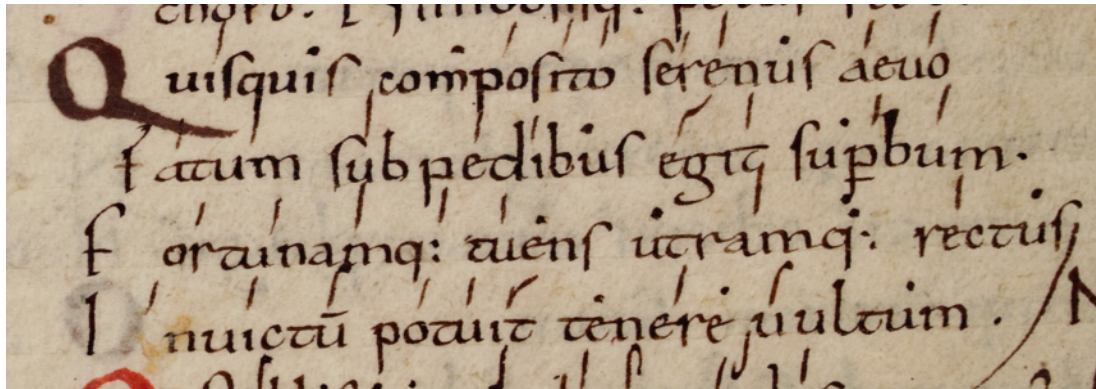 Quisquis composito serenus aeuo
Fatum sub pedibus egit sup̱bum·
Fortunamq: tuens utramq:· rectus
Inuictū potuit tenere uultum .